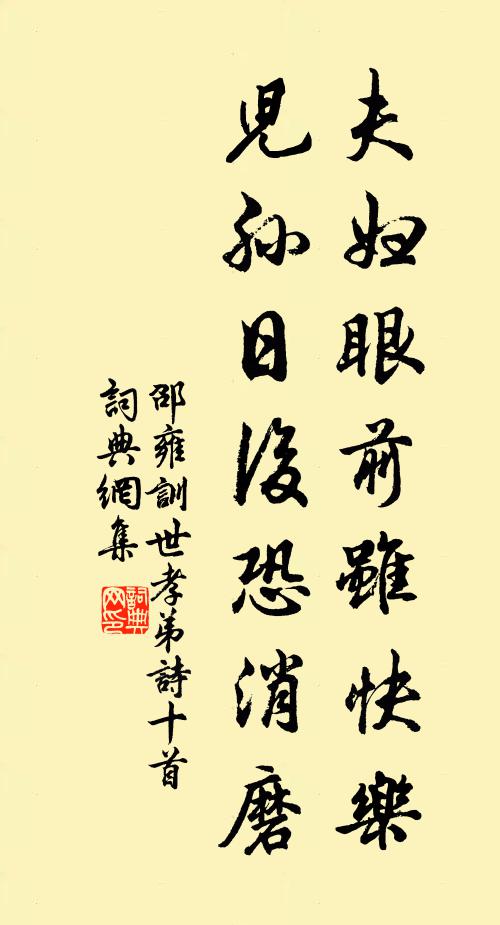 夫婦眼前雖快樂
兒孫日後恐消磨
邵雍訓世孝弟詩十首
詞典網集
詞典网印